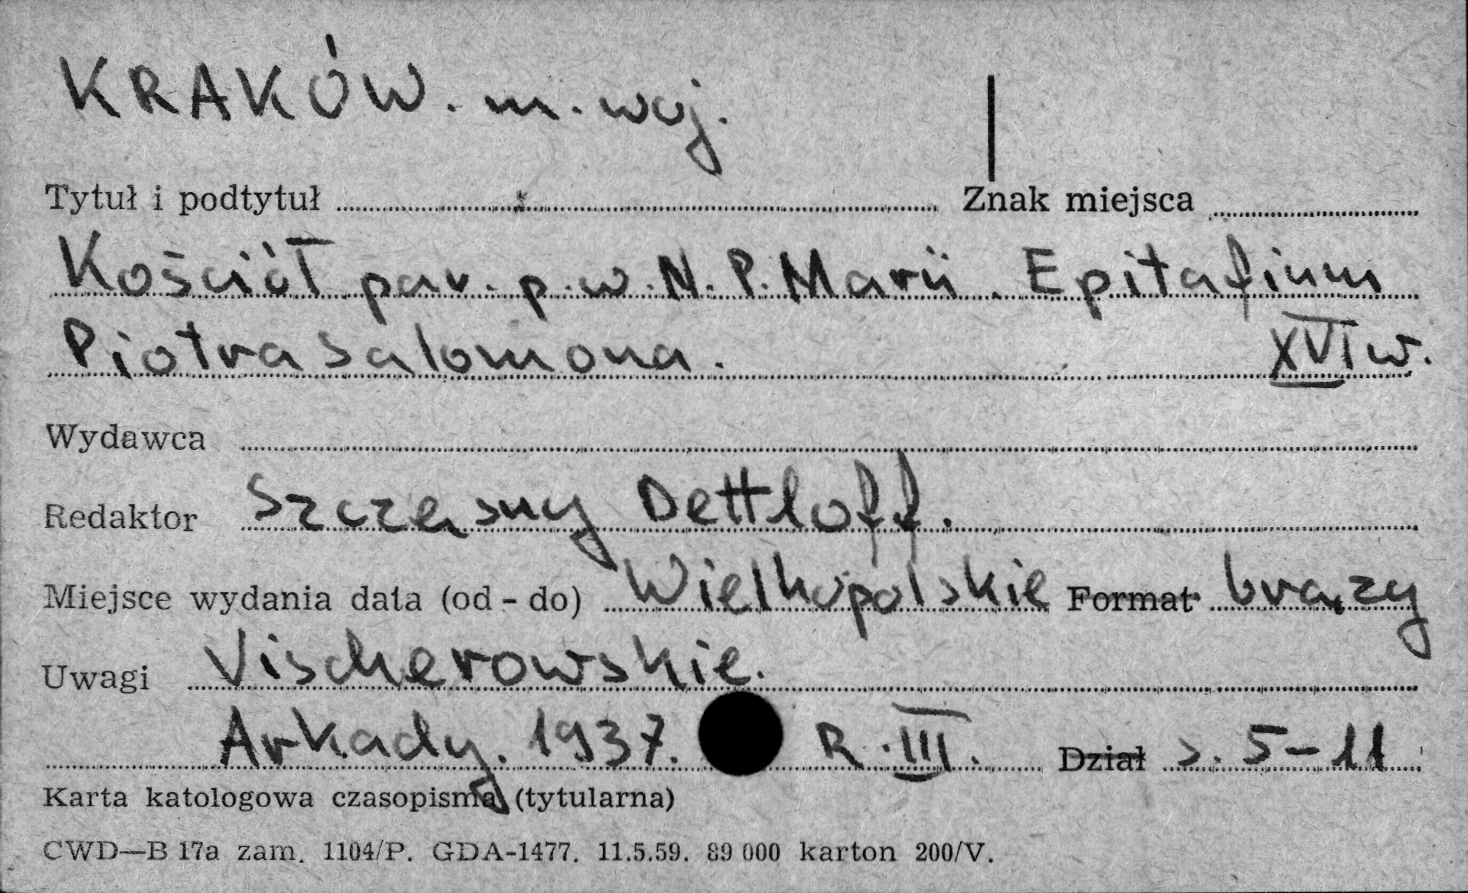 KRAKÓW. m. woj.
Tytuł i podtytuł Znak miejsca
Kościół par. p.w. N. P. Marii. Epitafium
Piotra Salomona. XVI w.
Wydawca
Redaktor Szczęsny Dettloff.
Miejsce wydania data (od - do) Wielkopolskie Format brązy
Uwagi Vischerowskie.
Arkady. 1937. R. III. Dział s. 5-11
Karta katologowa czasopisma (tytularna)
CWD—B 17a zam. 1104/P. GDA-1477. 11.5.59. 89 000 karton 200/V.